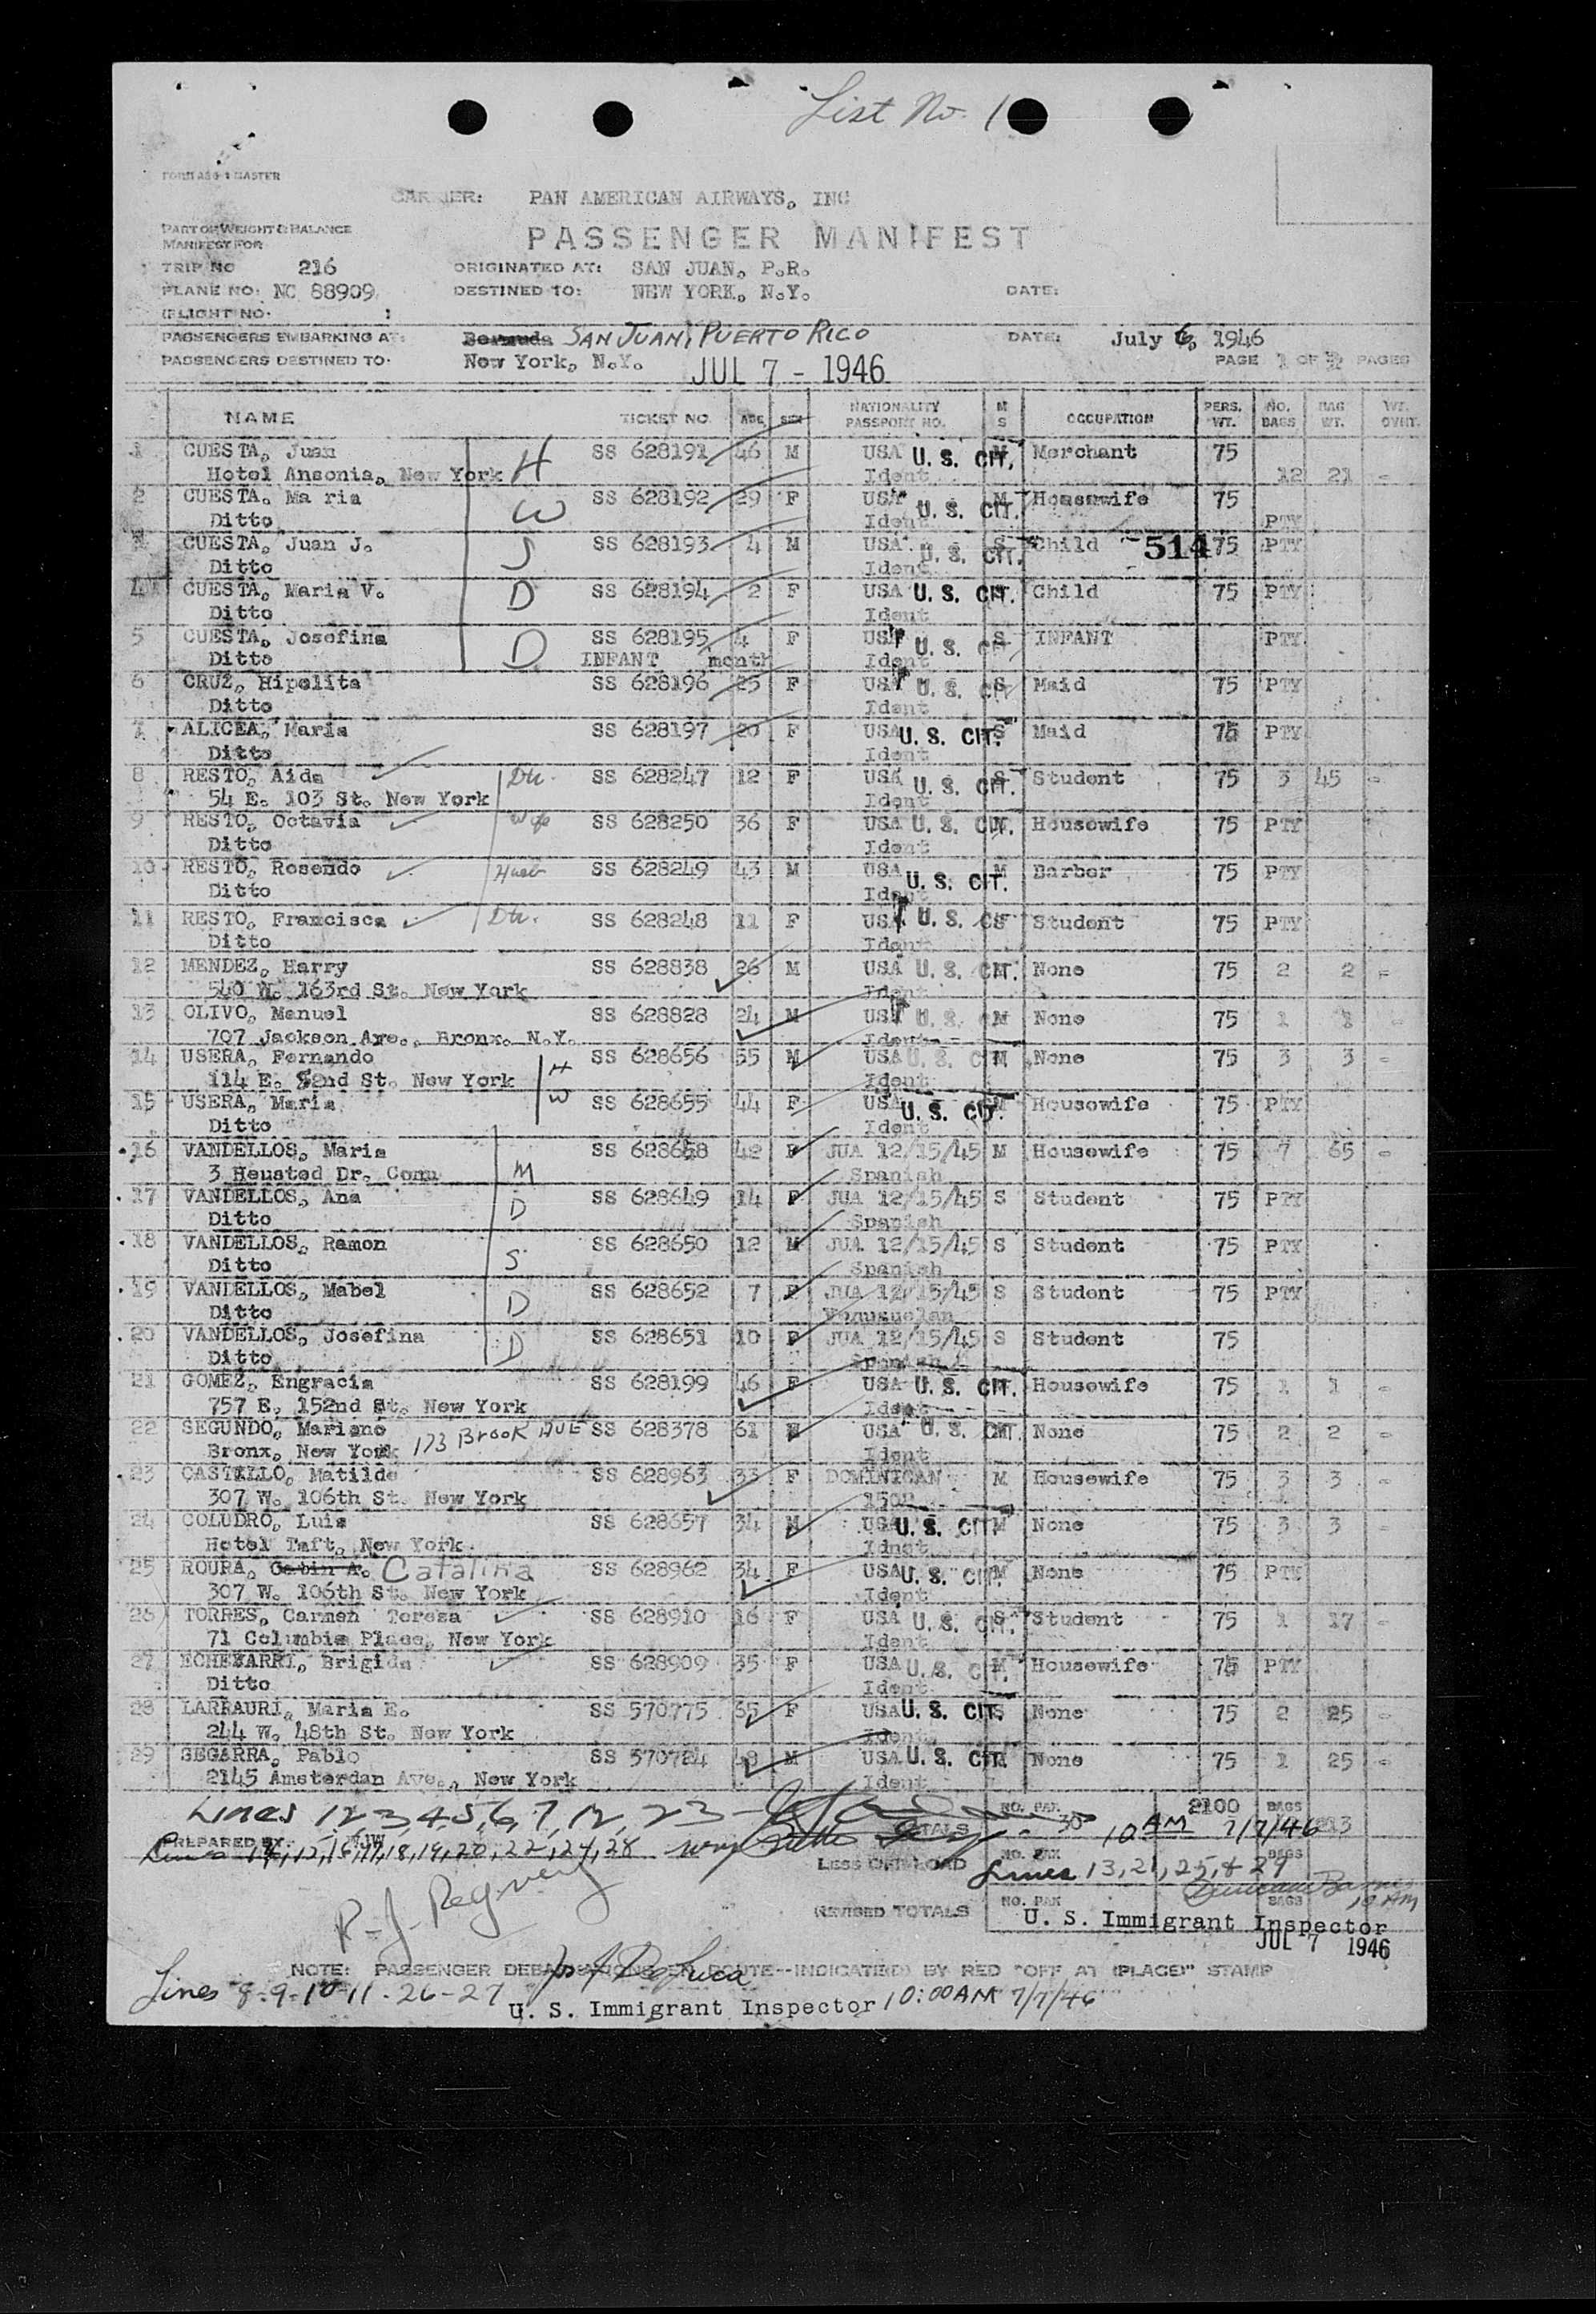 List No. 1
CARRIER: PAN AMERICAN AIRWAYS, INC
PART OF WEIGHT & BALANCE
MANIFEST FOR
PASSENGER MANIFEST
TRIP NO 216 ORIGINATED AT: SAN JUAN, P.R.
PLANE NO: NC 88909 DESTINED TO: NEW YORK, N.Y. DATE:
(FLIGHT NO. )
PASSENGERS EMBARKING AT: Bermuda SAN JUAN, PUERTO RICO DATE: July 6, 1946
PASSENGERS DESTINED TO: New York, N.Y. JUL 7 - 1946 PAGE 1 OF PAGES
NAME TICKET NO. AGE SEX NATIONALITY PASSPORT NO. M S OCCUPATION PERS. WT. NO. BAGS BAG WT. WT. OVHT.
1 CUESTA, Juan H SS 628191 46 M USA U. S. CIT. Merchant 75
Hotel Ansonia, New York Ident 12 21 -
2 CUESTA, Ma ria W SS 628192 29 F USA U. S. CIT. M Housewife 75
Ditto Ident PTY
CUESTA, Juan J. S SS 628193 4 M USA U. S. CIT. S Child 514 75 PTY
Ditto Ident
4 CUESTA, Maria V. D SS 628194 2 F USA U. S. CIT. Child 75 PTY
Ditto Ident
5 CUESTA, Josefina D SS 628195 4 F USA U. S. S INFANT PTY
Ditto INFANT month Ident
6 CRUZ, Hipolita SS 628196 25 F USA U. S. S Maid 75 PTY
Ditto Ident
7 ALICEA, Maria SS 628197 20 F USA U. S. CIT. S Maid 75 PTY
Ditto Ident
8 RESTO, Aida Dtr. SS 628247 12 F USA U. S. CIT. S Student 75 3 45 -
54 E. 103 St. New York Ident
9 RESTO, Octavia Wife SS 628250 36 F USA U. S. CIT. Housewife 75 PTY
Ditto Ident
10 RESTO, Rosendo Husb SS 628249 43 M USA U. S. CIT. M Barber 75 PTY
Ditto Ident
11 RESTO, Francisca Dtr. SS 628248 11 F USA U. S. S Student 75 PTY
Ditto Ident
12 MENDEZ, Harry SS 628838 26 M USA U. S. CIT. None 75 2 2 -
540 W. 163rd St. New York Ident
13 OLIVO, Manuel SS 628828 24 M USA U. S. M None 75 1 1 -
707 Jackson Ave., Bronx, N.Y. Ident
14 USERA, Fernando H SS 628656 55 M USA U. S. M None 75 3 3 -
114 E. 82nd St. New York Ident
15 USERA, Maria W SS 628655 44 F USA U. S. CIT. M Housewife 75 PTY
Ditto Ident
16 VANDELLOS, Maria SS 628658 42 F JUA 12/15/45 M Housewife 75 7 65 -
3 Heusted Dr. Conn M Spanish
17 VANDELLOS, Ana D SS 628649 14 F JUA 12/15/45 S Student 75 PTY
Ditto Spanish
18 VANDELLOS, Ramon SS 628650 12 M JUA 12/15/45 S Student 75 PTY
Ditto S Spanish
19 VANDELLOS, Mabel D SS 628652 7 F JUA 12/15/45 S Student 75 PTY
Ditto Venezuelan
20 VANDELLOS, Josefina D SS 628651 10 F JUA 12/15/45 S Student 75
Ditto Spanish
21 GOMEZ, Engracia SS 628199 46 F USA U. S. CIT. Housewife 75 1 1 -
757 E. 152nd St. New York Ident
22 SEGUNDO, Mariano 173 BROOK AVE SS 628378 61 M USA U. S. CIT. None 75 2 2 -
Bronx, New York Ident
23 CASTILLO, Matilde SS 628963 33 F DOMINICAN M Housewife 75 3 3 -
307 W. 106th St. New York
24 COLUDRO, Luis SS 628657 34 M USA U. S. CIT. M None 75 3 3 -
Hotel Taft, New York Idnet
25 ROURA, Catalina SS 628962 34 F USA U. S. CIT. M None 75 PTY
307 W. 106th St. New York Ident
26 TORRES, Carmen Teresa SS 628910 16 F USA U. S. CIT. S Student 75 1 17 -
71 Columbia Place, New York Ident
27 ECHEVARRI, Brigida SS 628909 35 F USA U. S. CIT. M Housewife 75 PTY
Ditto Ident
28 LARRAURI, Maria E. SS 570775 35 F USA U. S. CIT. S None 75 2 25 -
244 W. 48th St. New York Ident
29 SEGARRA, Pablo SS 570724 48 M USA U. S. CIT. None 75 1 25 -
2145 Amsterdan Ave., New York Ident
Lines 1,2,3,4,5,6,7,12,23 NO. PAX 30 2100 BAGS
PREPARED BY: WJW TOTALS 10 AM 7/7/46
Lines 14,15,16,17,18,19,20,22,24,28
LESS OFFLOAD NO. PAX BAGS
Lines 13, 21, 25, & 29
10 AM
REVISED TOTALS NO. PAX BAGS
U. S. Immigrant Inspector
JUL 7 1946
NOTE: PASSENGER DEBARKATIONS EN ROUTE--INDICATED BY RED "OFF AT (PLACE)" STAMP
Lines 8-9-10-11-26-27
U. S. Immigrant Inspector 10:00AM 7/7/46